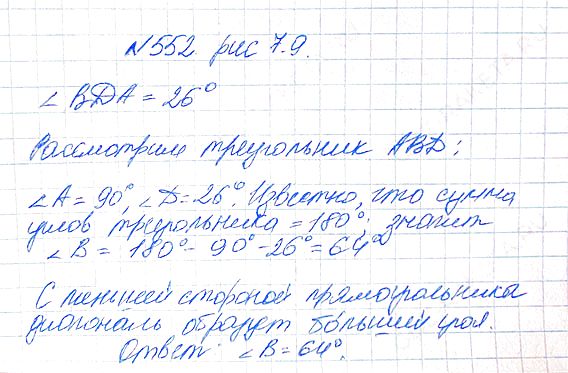 №552 рис 7.9.
∠ BDA = 26°
Рассмотрим треугольник ABD:
∠A = 90°, ∠D = 26°. Известно, что сумма
углов треугольника = 180°, значит
∠B = 180° - 90° - 26° = 64°
С меньшей стороной прямоугольника
диагональ образует больший угол.
Ответ: ∠B = 64°.